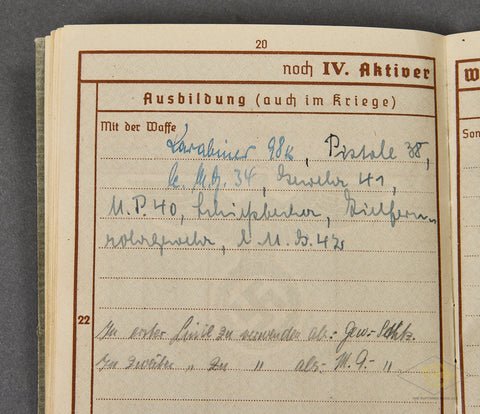 20
noch IV. Aktiver
W
Ausbildung (auch im Kriege)
Mit der Waffe
Son
Karabiner 98k, Pistole 38,
le. M.G. 34, Gewehr 41,
M.P. 40, Schießbecher, Zielfern-
rohrgewehr, l. M.G. 42
22
In erster Linie zu verwenden als:- Gew.- Schtz.
In zweiter " zu " als:- M.G.- "